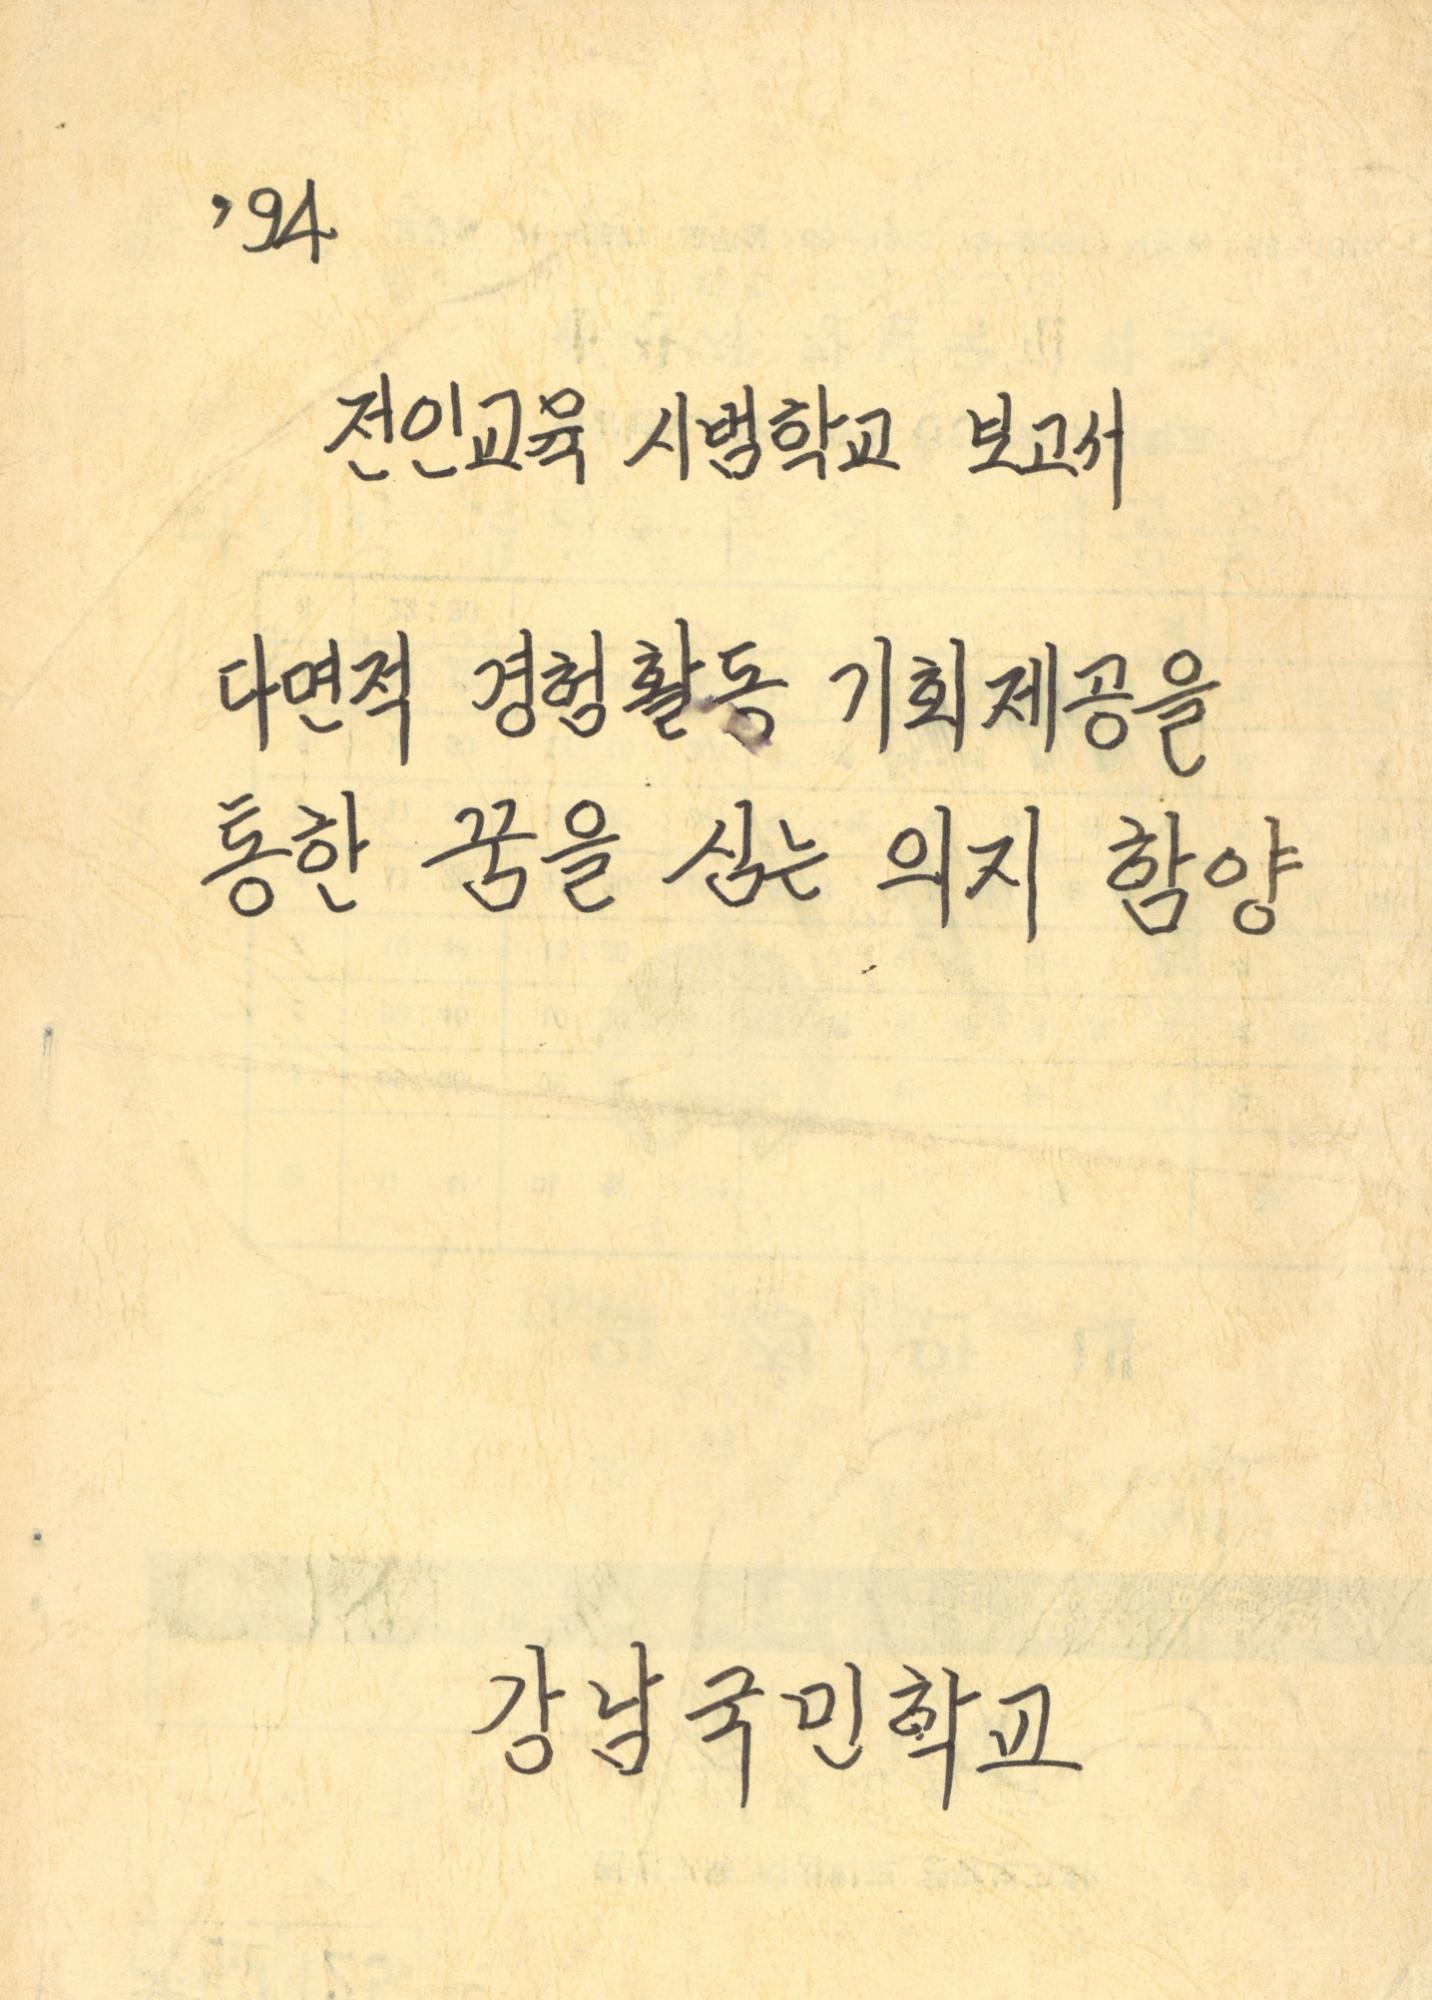 '94
전인교육 시범학교 보고서
다면적 경험활동 기회제공을
통한 꿈을 심는 의지 함양
강남국민학교